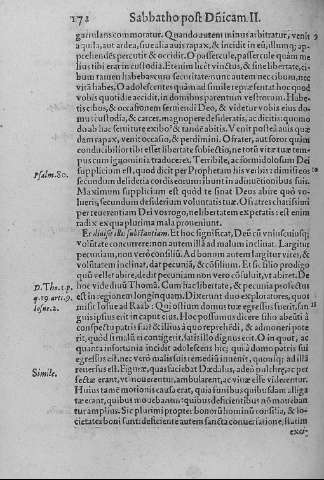 272 Sabbatho post Dñicam. II.
garulans commoratur. Quando autem minus arbitratur, venit
aquila, aut ardea, siue alia auis rapax, & incidit in eũ, illumq; ap-
prehendés percutit & occidit. O passercule, passercule quàm me
lius tibi erat in custodia. Etenim licet vinctus, & sine libertate, ci-
bum tamen habebas cum securitate nunc autem nec cibum, nec
vitã habes. O adolescentes quàm ad similé repræsentat hoc quod
vobis quotidie accidit, in domibus parentum vestrorum. Habe-
tis cibos, & occasionem seruiendi Deo, & videtur vobis eius do-
mus custodia, & carcer,
do ab hac seruitute exibo? & tandẽ abitis. Venit postea auis quæ
dam rapax, venit occasio, & perdimini. O frater, aut soror quàm
conducibilior tibi esset libertate subiectio, ne totũ vitæ tuæ tem-
pus cum ignominia traduceres. Terribile, ac formidolosum Dei
Psalm. 80. supplicium est, quod dicit per Prophetam his verbis: dimisi eos
secundum desideria cordis eorum: ibunt in adinuentionibus suis.
Maximum supplicium est quod te sinat Deus abire quò vo-
lueris, secundum desiderium voluntatis tuæ. O fratres charissimi
per reuerentiam Dei vos rogo, ne libertatem expetatis: est enim
radix ex qua plurima mala proueniunt.
Et diuisit illis substantiam. Et hoc significat, Deũ cũ vniuscuiusq;
volũtate concurrere: non autem illã ad malum inclinat. Largitur
pecuniam, non verò consiliũ. Ad bonum autem largitur vires, &
voluntatem inclinat, dat pecuniã, & cõsilium. Et si filio prodigo
quũ vellet abire, dedit pecuniam non verò cõsuluit, vt abiret. De
D. Tho. 1. p. hoc videndũ D. Thomã. Cum hac libertate, & pecunia profectus
q. 19. arti. 9. est in regionem longinquam. Dixerunt duo exploratores, quos
Iosue. 2. misit Iosue ad Raab: Qui ostium domus tuæ egressus fuerit, san
guis ipsius erit in caput eius. Hoc possumus dicere filio abeũti à
conspectu patris
rit, quòd si malũ ei contigerit, satis illo dignus erit. O in quot, ac
quanta infortunia incidit adolescens hic; quia domo patris sui
egressus est: nec verò malis suis remediũ inuenit, quousq; ad illã
Simile. reuersus est. Figuræ, quas faciebat Dædalus, adeò pulchrę, ac per
fectæ erant, vt mouerentur, ambularent, ac viuæ esse viderentur.
Huius tamẽ motionis causa erat, quia funibus quibusdam alliga
tæ erant, quibus mouebantur: quibus deficientibus nõ moueban
tur amplius. Sic plurimi propter bonorũ hominũ consilia, & so-
cietatẽ boni sunt, deficiente autem sancta conuersatione, statim